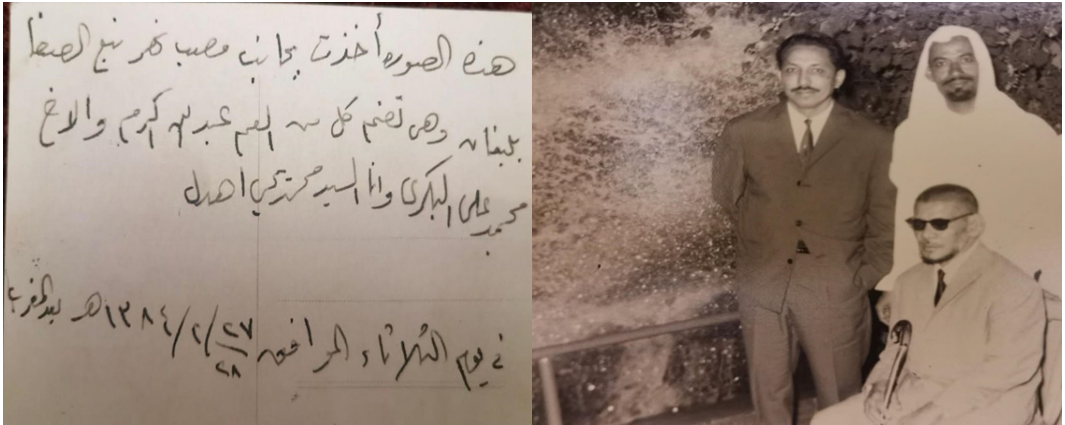 هذه الصوره أخذت بجانب مصب نهر نبع الصفا
بلبنان وهى تضم كل من العم عبدالله كرم والاخ
محمد على البكرى وانا السيد محمد يحي اهدل
في يوم الثلاثاء الموافق ٢٧/٢/١٣٨٤هـ بعد المغرب
٢٨